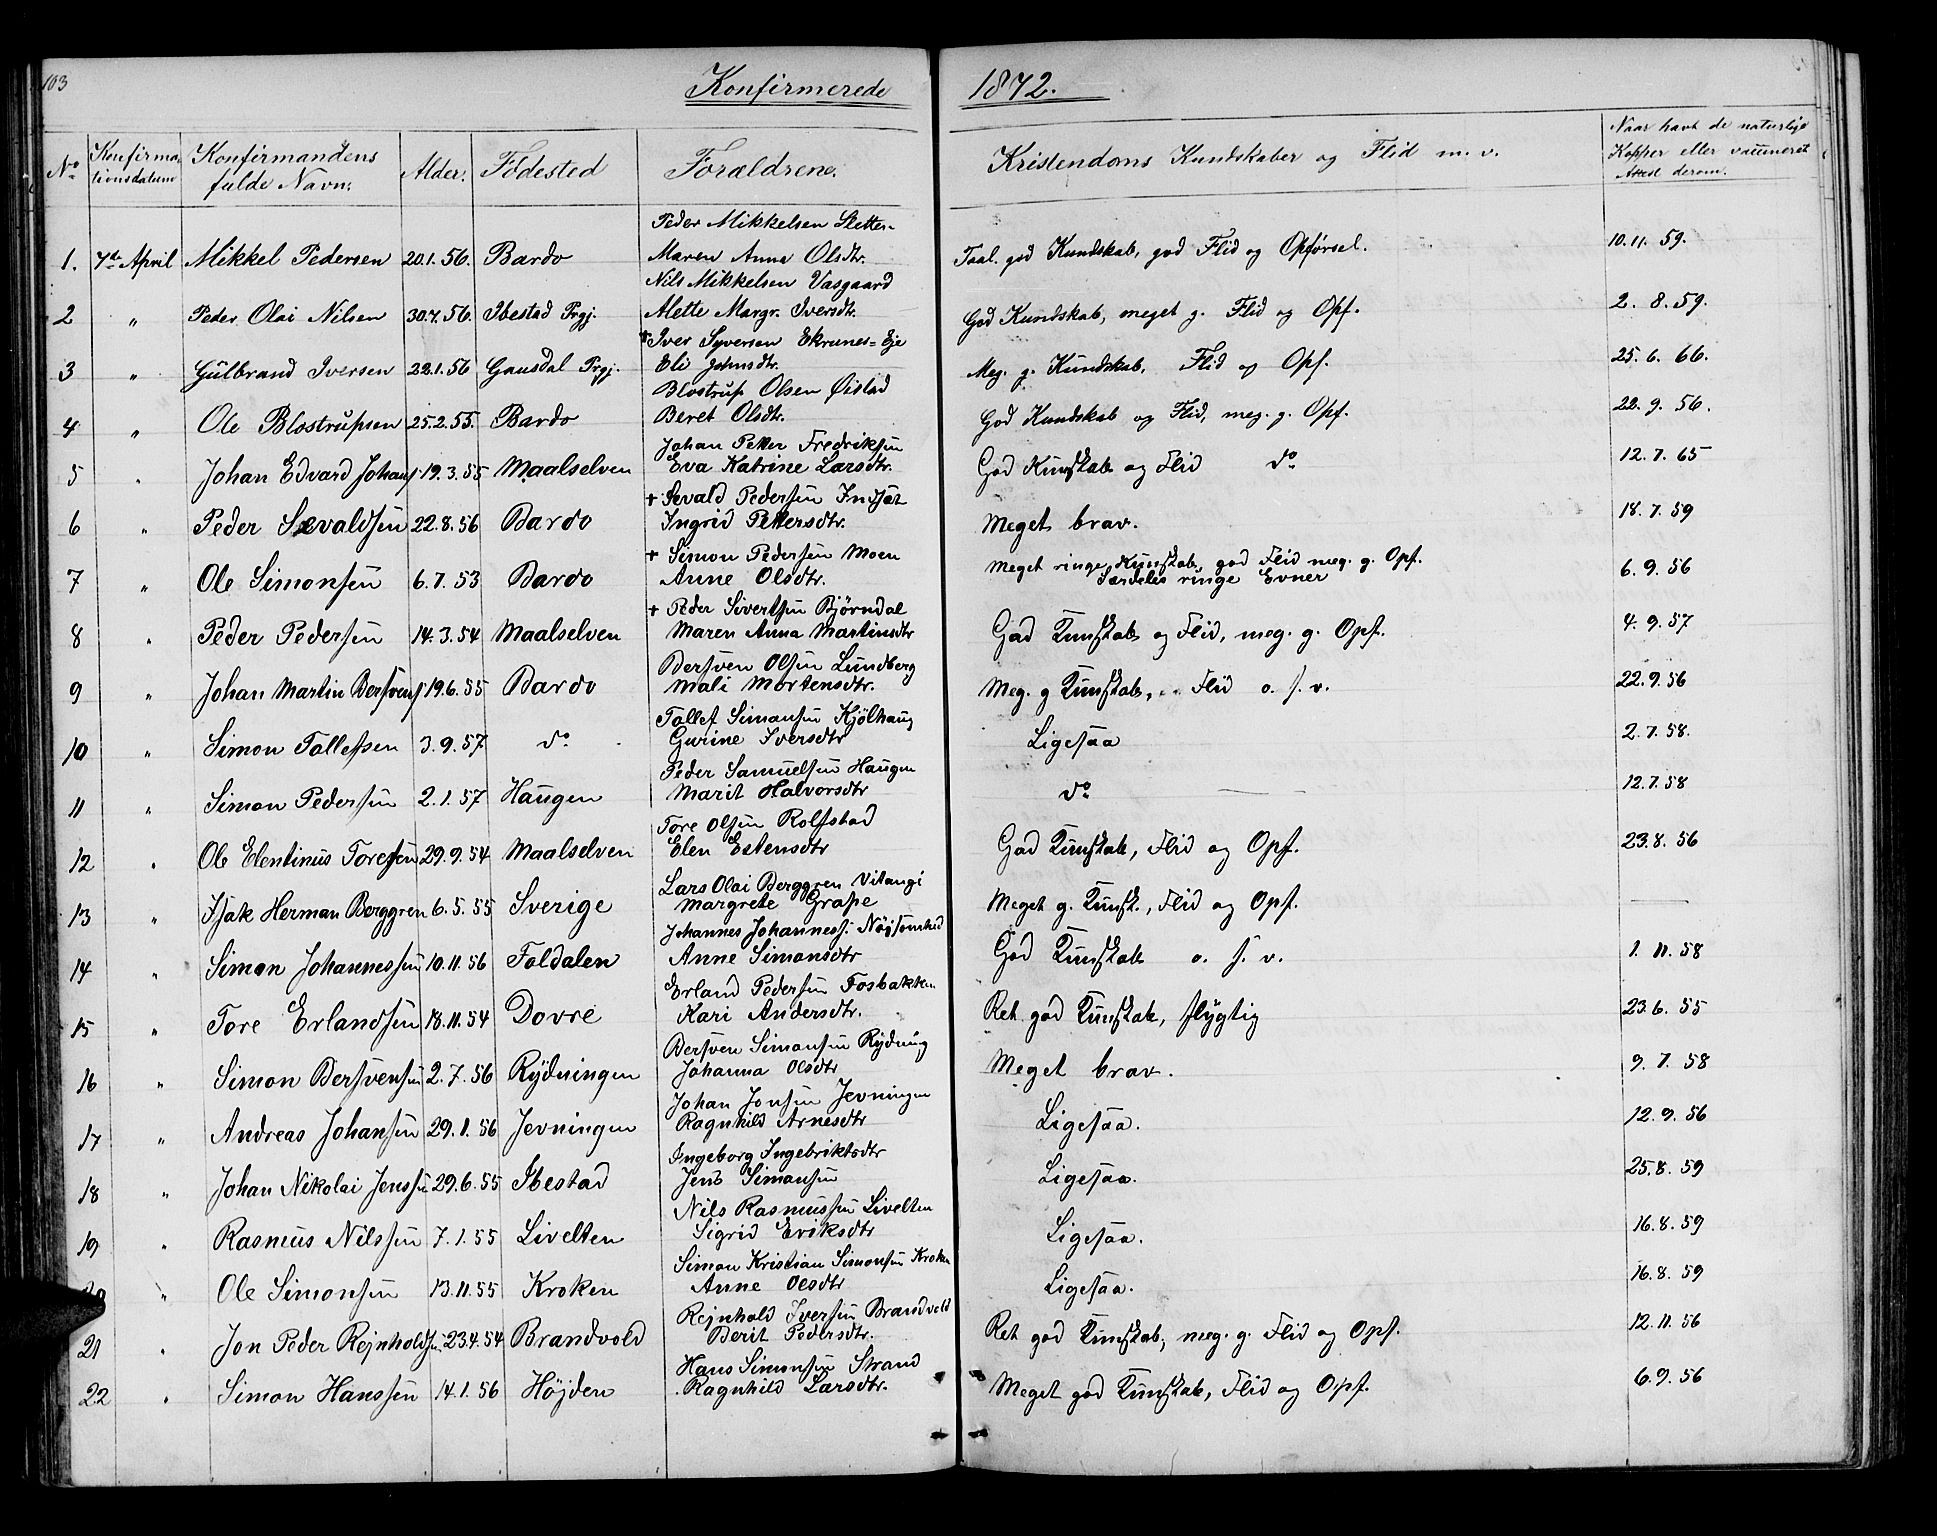 103
Konfirmerede 1872.
No Konfirmationsdatum Konfirmandens fulde Navn. Alder. Födested Forældrene. Kristendoms Kundskaber og Flid m. v. Naar havt de naturlige Kopper eller vaccineret Attest derom.
Peder Mikkelsen Sletten-
1. 7de April Mikkel Pedersen 20.1.56. Bardo Maren Anna Olsdtr. Taal. god Kundskab, god Flid og Opförsel. 10.11.59.
Nils Mikkelsen Vasgaard
2 " Peder Olai Nilsen 30.7.56. Ibestad Prgj. Mette Margr. Iversdtr. God Kundskab, meget g. Flid og Opf. 2.8.59.
+ Iver Syversen Ekrunes=Eje
3 " Gulbrand Iversen 22.1.56 Gausdal Prgj. Eli Johnsdtr. Meg. g. Kundskab, Flid og Opf. 25.6.66.
Blostrup Olsen Øistad
4 " Ole Blostrupsen 25.2.55. Bardo Beret Olsdtr. God Kundskab og Flid, meg. g. Opf. 22.9.56.
Johan Petter Fredriksen
5 " Johan Edvard Johans. 19.3.55 Maalselven Eva Katrine Larsdtr. God Kunskab og Flid do 12.7.65
+ Sevald Pedersen Indsæt
6 " Peder Sevaldsen 22.8.56 Bardo Ingrid Pettersdtr. Meget brav. 18.7.59
+ Simon Pedersen Moen
7 " Ole Simonsen 6.7.53 Bardo Anne Olsdtr. Meget ringe Kunskab, god Flid meg. g. Opf. 6.9.56
Særdeles ringe Evner
+ Peder Sivertsen Bjørndal
8 " Peder Pedersen 14.3.54 Maalselven Maren Anna Martinsdtr God Kunskab og Flid, meg. g. Opf. 4.9.57
Bersven Olsen Lundberg
9 " Johan Martin Bersvens. 19.6.55 Bardo Mali Mortensdtr. Meg. g Kunskab, Flid o. s. v. 22.9.56
Tollef Simonsen Kjölhaug
10 " Simon Tollefsen 3.9.57 do Gurine Iversdtr Ligesaa 2.7.58.
Peder Samuelsen Haugen
11 " Simon Pedersen 2.1.57 Haugen Marit Halvorsdtr do 12.7.58
Tore Olsen Rolfstad
12 " Ole Elentinus Toresen 29.9.54 Maalselven Elen Estensdtr God Kunskab, Flid og Opf. 23.8.56
Lars Olai Berggren Vitangi
13 " Isak Herman Berggren 6.5.55 Sverige Margrete Grape Meget g. Kunsk., Flid og Opf. —
Johannes Johanness. Nöjsomhed
14 " Simon Johannessen 10.11.56 Foldalen Anne Simonsdtr God Kunskab o. s. v. 1.11.58
Erland Pedersen Fosbakken
15 " Tore Erlandsen 18.11.54 Dovre Kari Andersdtr. Ret god Kunskab, flygtig 23.6.55
Bersven Simonsen Rydning
16 " Simon Bersvensen 2.7.56 Rydningen Johanna Olsdtr Meget brav. 9.7.58
Johan Jonsen Jevningen
17 " Andreas Johansen 29.1.56 Jevningen Ragnhild Arnesdtr Ligesaa. 12.9.56
Ingeborg Ingebriktsdtr
18 " Johan Nikolai Jenssen 29.6.55 Ibestad Jens Simonsen Ligesaa. 25.8.59
Nils Rasmussen Livelten
19 " Rasmus Nilssen 7.1.55 Livelten Sigrid Eriksdtr Ligesaa. 16.8.59
Simon Kristian Simonsen Kroken
" Ole Simonsen 13.11.55 Kroken Anne Olsdtr Ligesaa. 16.8.59
Rejnhold Iversen Brandvold
21 " Jon Peder Rejnholdsen 23.4.54 Brandvold Berit Pedersdtr. Ret god Kunskab, meg. g. Flid og Opf. 12.11.56
Hans Simonsen Strand
22 " Simon Hanssen 14.1.56 Höjden Ragnhild Larsdtr. Meget god Kunskab, Flid og Opf. 6.9.56